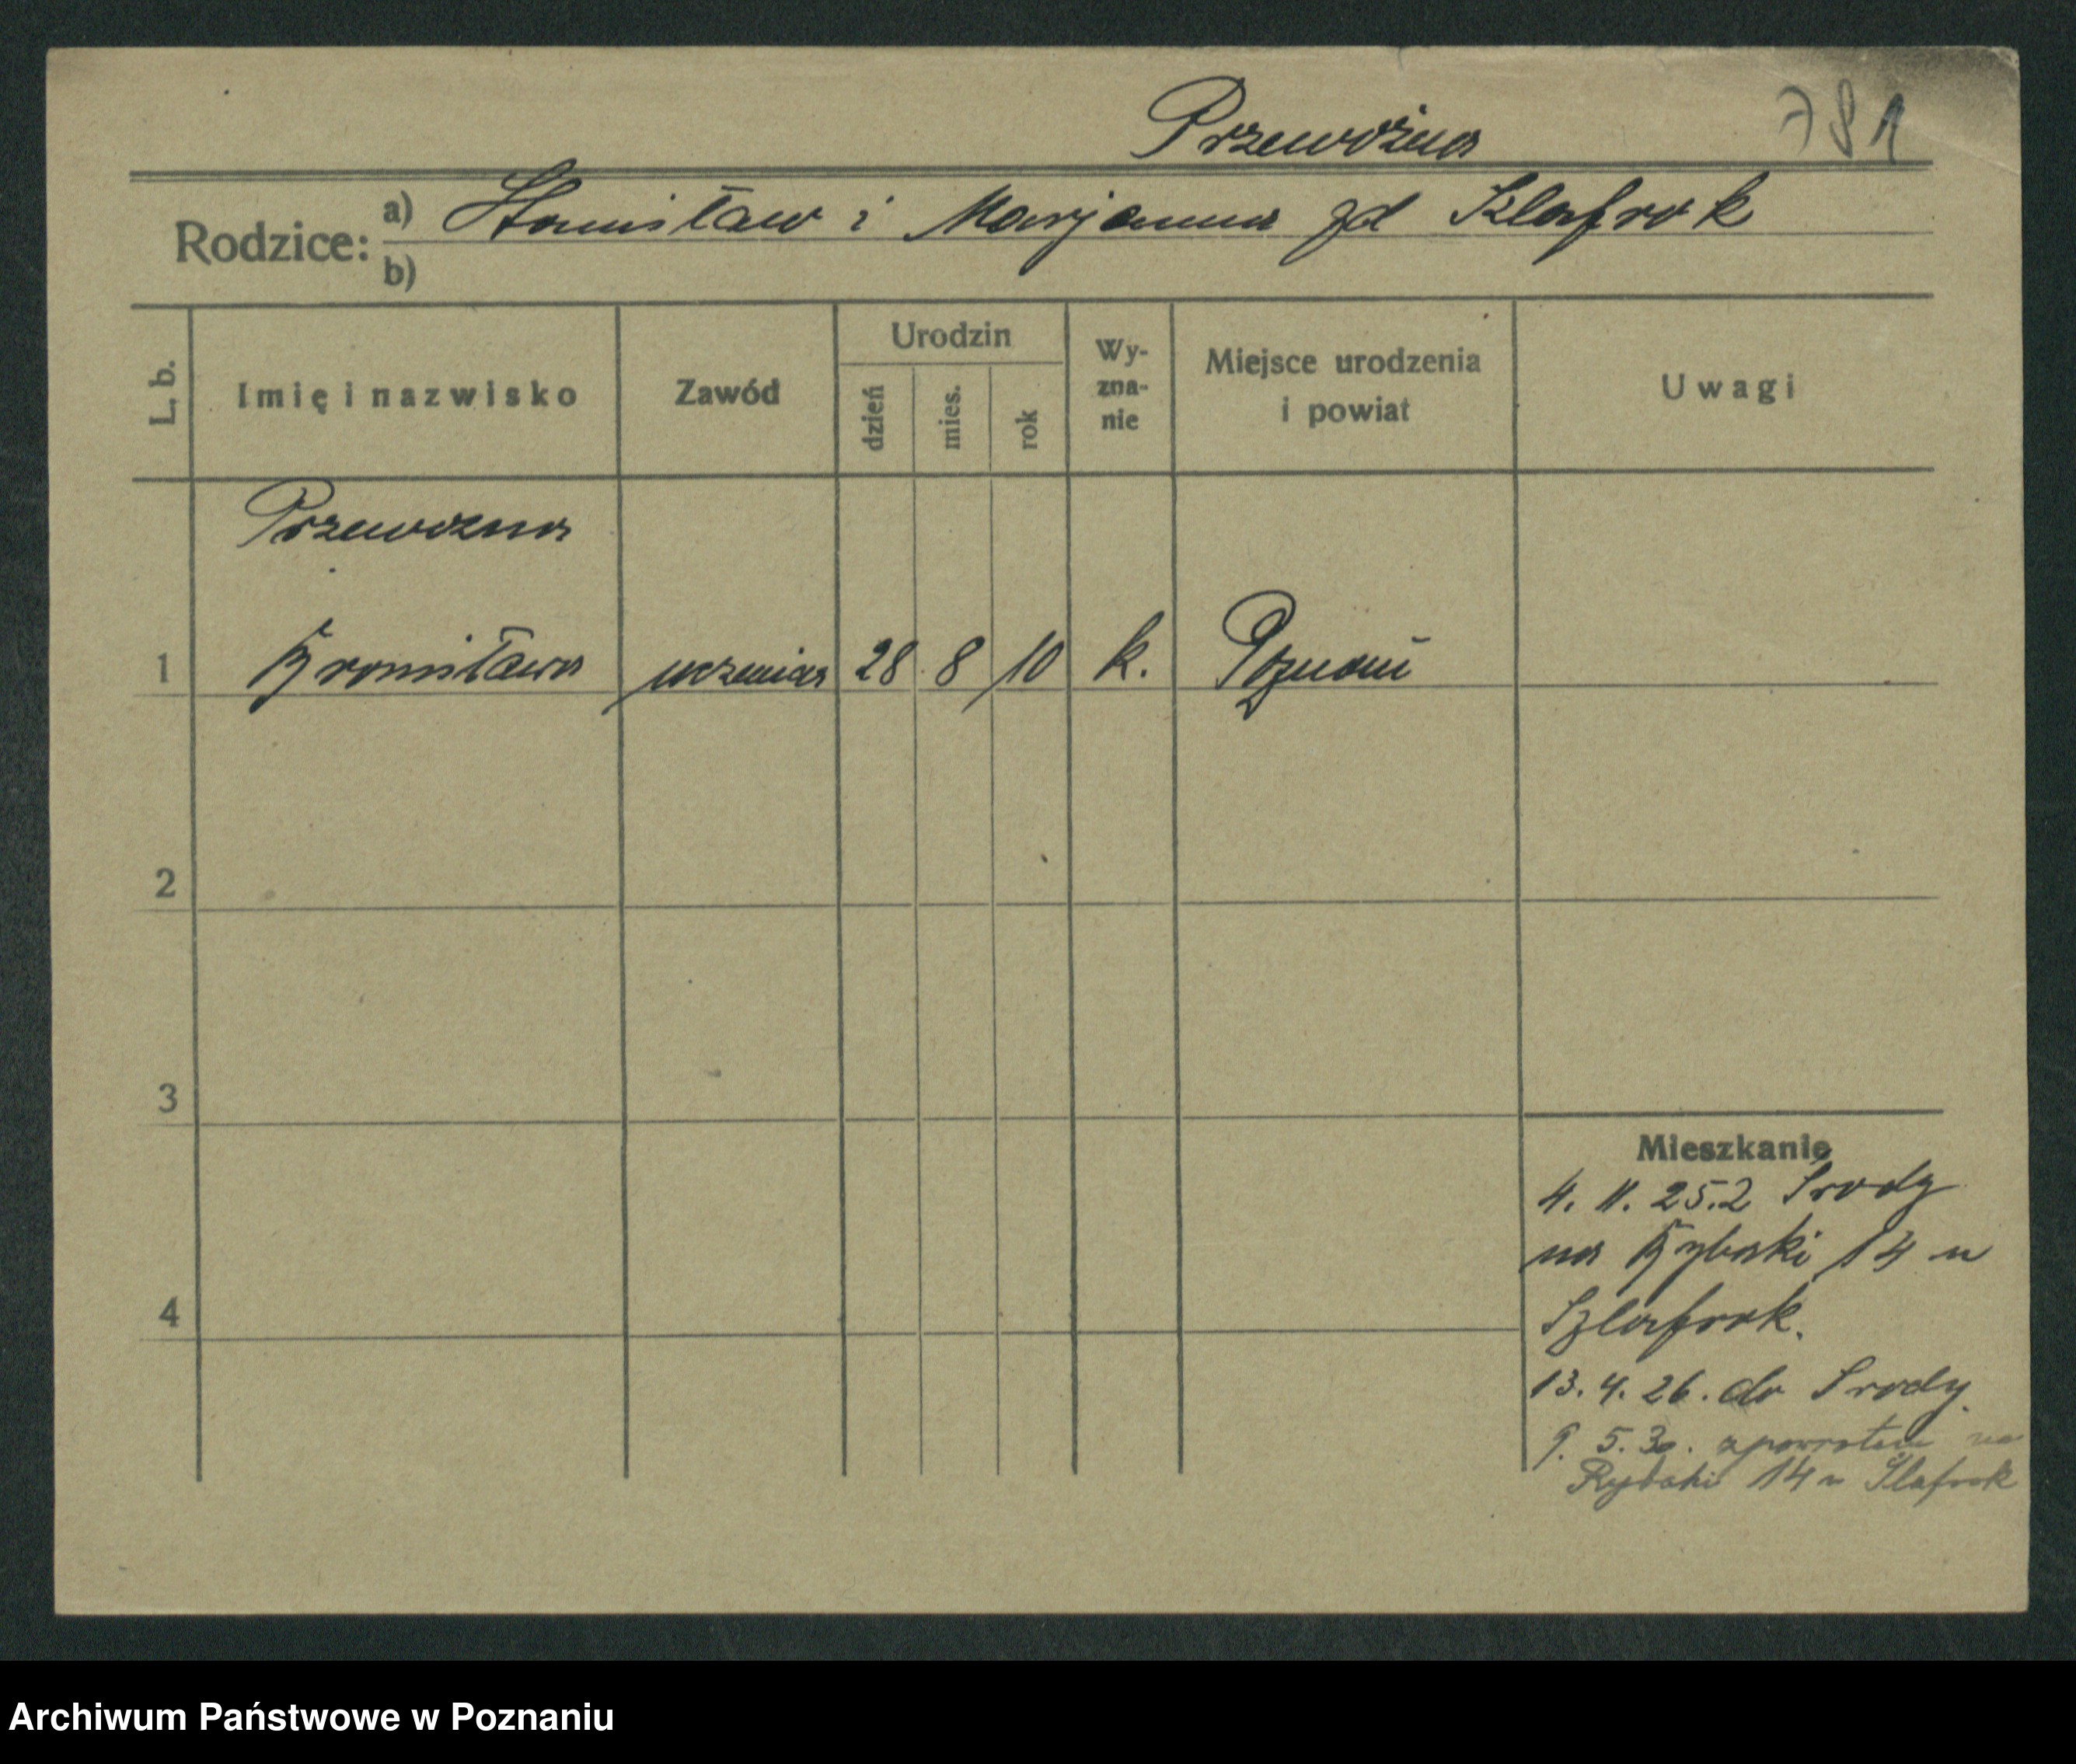 Przewoźna 781
Rodzice: a) Stanisław i Marjanna zd Szlafrok
b)
L. b. Imię i nazwisko Zawód Urodzin dzień mies. rok Wy-zna-nie Miejsce urodzenia i powiat Uwagi
Przewozna
1 Bronisława uczenica 28 8 10 k. Poznań
2
3
4
Mieszkanie
4. 11. 25. z Srody
na Rybaki 14 u
Szlafrok.
13. 4. 26. do Srody.
9. 5. 30. zpowrotem na
Rybaki 14 u Slafrok
Archiwum Państwowe w Poznaniu